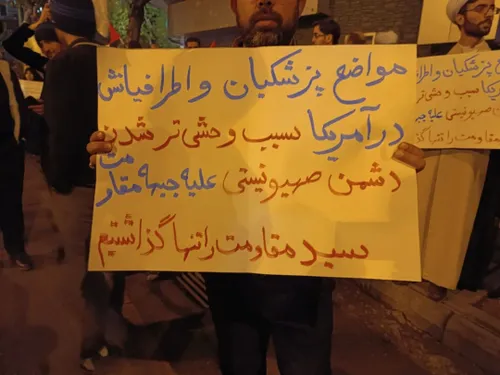 مواضع پزشکیان و اطرافیانش
در آمریکا سبب وحشی تر شدن
دشمن صهیونیستی علیه جبهه مقاومت
سید مقاومت را تنها گذاشتیم
پزشکیان و اطرا
سبب وحشی تر
صهیونیستی علیه
مقاومت را تنها گذا